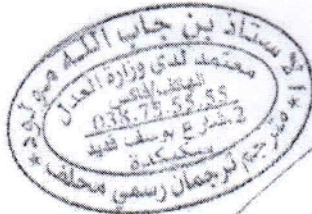 الاستاذ بن جاب الله مولود
معتمد لدى وزارة العدل
الهاتف
035.75.55.55
2 شارع يوسف قديد
سكيكدة
مترجم ترجمان رسمي محلف